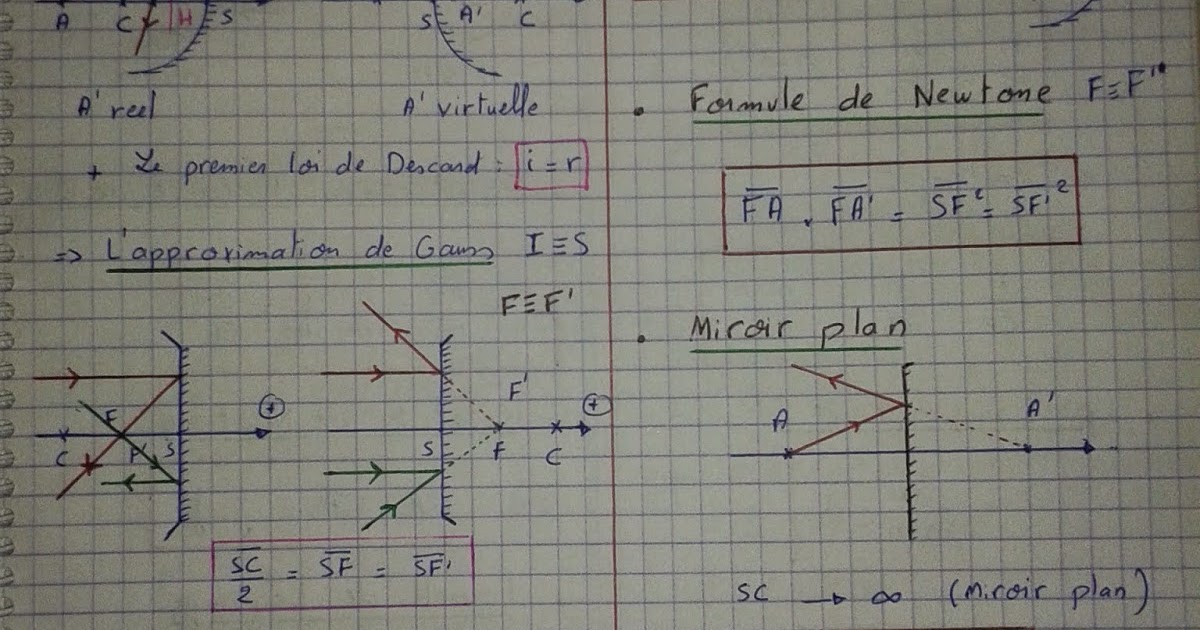 A C H S
S A' C
A' reel
A' virtuelle
+ Le premier loi de Descand : i = r
=> L'approximation de Gauss I ≡ S
F ≡ F'
C F F' S +
S F' F C +
SC/2 = SF = SF'
• Formule de Newtone F ≡ F'
FA . FA' = SF² = SF'²
• Miroir plan
A A'
SC → ∞ (Miroir plan)